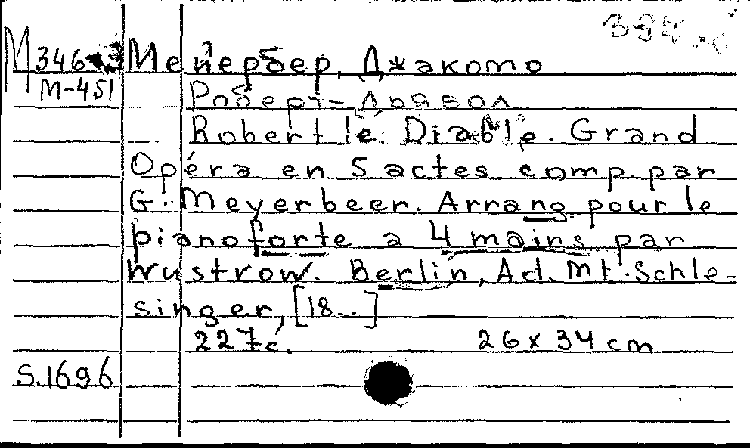 М346-3 Мейербер, Джакомо
М-451 Роберт-Дьявол
Robert le Diable. Grand
Opéra en 5 actes comp. par
G. Meyerbeer. Arrang. pour le
pianoforte a 4 mains par
Wustrow. Berlin, Ad. Mt. Schle-
singer, [18..]
227с. 26 x 34 cm
S.1696